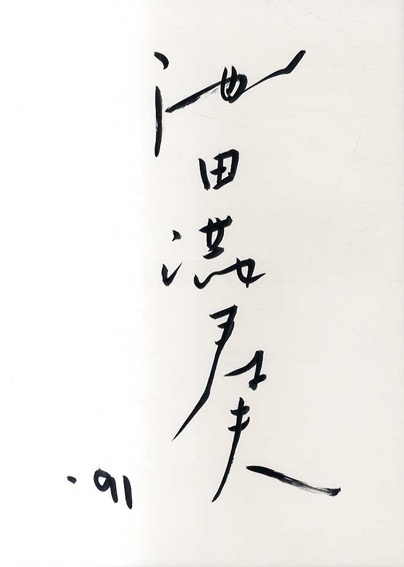 池田満寿夫
.91